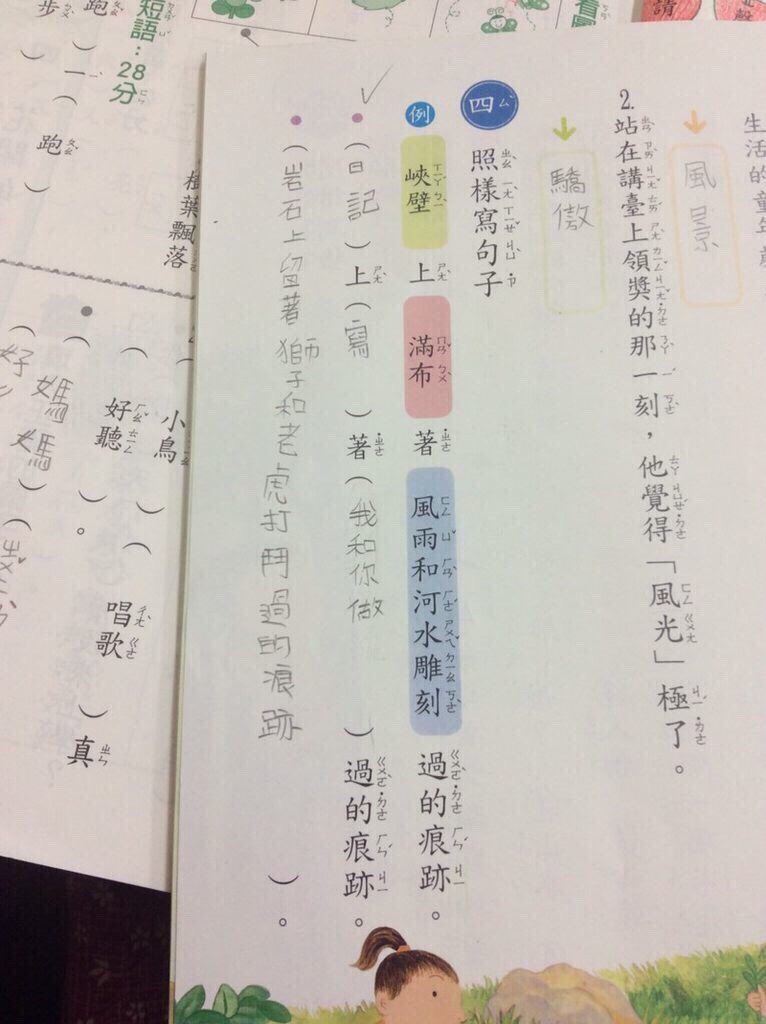 請
看圖
生活的童年歲
風景
2.站在講臺上領獎的那一刻,他覺得「風光」極了。
驕傲
四 照樣寫句子
例 峽壁上滿布著風雨和河水雕刻過的痕跡。
(日記)上(寫)著(我和你做)過的痕跡。
(岩石上留著獅子和老虎打鬥過的痕跡)。
葉飄落
短語:28分
跑
步
一(跑)
小鳥( )唱歌
好聽( )。
媽媽
好
真